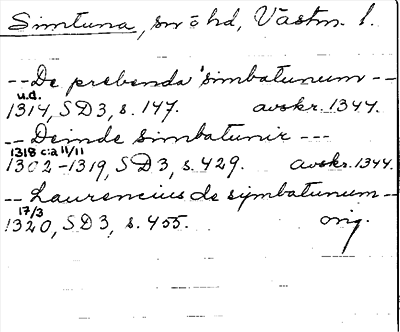 Simtuna, sn o hd, Västm. l.
-- De prebenda simbatunum --
u.d.
1314, SD 3, s. 147. avskr. 1344.
-- Deinde simbatunir ---
1318 c:a 11/11
1302-1319, SD 3, s. 429. avskr. 1344.
-- Laurencius de symbatunum --
17/3
1320, SD 3, s. 455. orig.